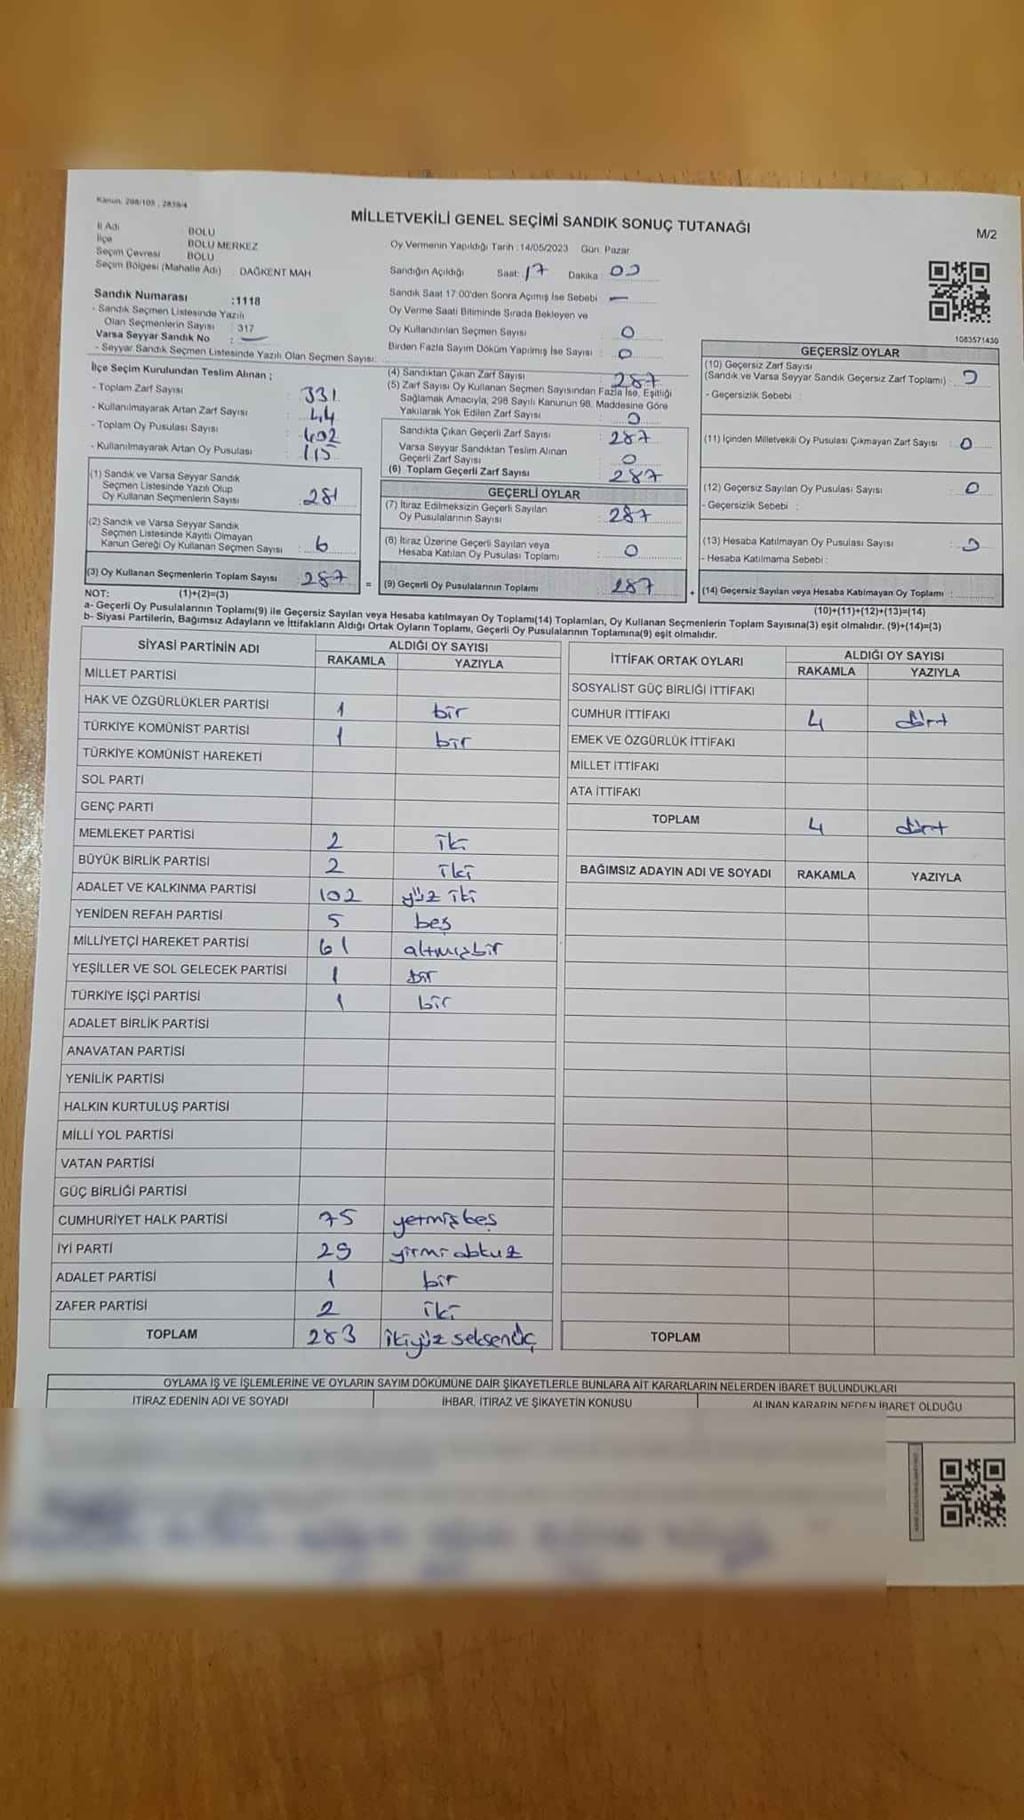 Kanun, 298/105 , 2839/4
MİLLETVEKİLİ GENEL SEÇİMİ SANDIK SONUÇ TUTANAĞI
M/2
İl Adı BOLU
İlçe BOLU MERKEZ
Seçim Çevresi BOLU
Seçim Bölgesi (Mahalle Adı) DAĞKENT MAH
Sandık Numarası :1118
- Sandık Seçmen Listesinde Yazılı
Olan Seçmenlerin Sayısı : 317
Varsa Seyyar Sandık No : —
- Seyyar Sandık Seçmen Listesinde Yazılı Olan Seçmen Sayısı:
Oy Vermenin Yapıldığı Tarih :14/05/2023 Gün: Pazar
Sandığın Açıldığı Saat: 17 Dakika : 00
Sandık Saat 17:00'den Sonra Açımış İse Sebebi : —
Oy Verme Saati Bitiminde Sırada Bekleyen ve
Oy Kullandırılan Seçmen Sayısı : 0
Birden Fazla Sayım Döküm Yapılmış İse Sayısı : 0
1083571430
İlçe Seçim Kurulundan Teslim Alınan ;
- Toplam Zarf Sayısı : 331
- Kullanılmayarak Artan Zarf Sayısı : 44
- Toplam Oy Pusulası Sayısı : 402
- Kullanılmayarak Artan Oy Pusulası : 115
(1) Sandık ve Varsa Seyyar Sandık
Seçmen Listesinde Yazılı Olup
Oy Kullanan Seçmenlerin Sayısı : 281
(2) Sandık ve Varsa Seyyar Sandık
Seçmen Listesinde Kayıtlı Olmayan
Kanun Gereği Oy Kullanan Seçmen Sayısı : 6
(3) Oy Kullanan Seçmenlerin Toplam Sayısı : 287
(4) Sandıktan Çıkan Zarf Sayısı : 287
(5) Zarf Sayısı Oy Kullanan Seçmen Sayısından Fazla İse, Eşitliği
Sağlamak Amacıyla, 298 Sayılı Kanunun 98. Maddesine Göre
Yakılarak Yok Edilen Zarf Sayısı : 0
Sandıkta Çıkan Geçerli Zarf Sayısı : 287
Varsa Seyyar Sandıktan Teslim Alınan
Geçerli Zarf Sayısı : 0
(6) Toplam Geçerli Zarf Sayısı : 287
GEÇERLİ OYLAR
(7) İtiraz Edilmeksizin Geçerli Sayılan
Oy Pusulalarının Sayısı : 287
(8) İtiraz Üzerine Geçerli Sayılan veya
Hesaba Katılan Oy Pusulası Toplamı : 0
= (9) Geçerli Oy Pusulalarının Toplamı : 287
GEÇERSİZ OYLAR
(10) Geçersiz Zarf Sayısı
(Sandık ve Varsa Seyyar Sandık Geçersiz Zarf Toplamı) : 0
- Geçersizlik Sebebi :
(11) İçinden Milletvekili Oy Pusulası Çıkmayan Zarf Sayısı : 0
(12) Geçersiz Sayılan Oy Pusulası Sayısı : 0
- Geçersizlik Sebebi :
(13) Hesaba Katılmayan Oy Pusulası Sayısı : 0
- Hesaba Katılmama Sebebi :
+ (14) Geçersiz Sayılan veya Hesaba Katılmayan Oy Toplamı :
NOT: (1)+(2)=(3)
(10)+(11)+(12)+(13)=(14)
a- Geçerli Oy Pusulalarının Toplamı(9) ile Geçersiz Sayılan veya Hesaba katılmayan Oy Toplamı(14) Toplamları, Oy Kullanan Seçmenlerin Toplam Sayısına(3) eşit olmalıdır. (9)+(14)=(3)
b- Siyasi Partilerin, Bağımsız Adayların ve İttifakların Aldığı Ortak Oyların Toplamı, Geçerli Oy Pusulalarının Toplamına(9) eşit olmalıdır.
SİYASİ PARTİNİN ADI ALDIĞI OY SAYISI
RAKAMLA YAZIYLA
MİLLET PARTİSİ
HAK VE ÖZGÜRLÜKLER PARTİSİ 1 bir
TÜRKİYE KOMÜNİST PARTİSİ 1 bir
TÜRKİYE KOMÜNİST HAREKETİ
SOL PARTİ
GENÇ PARTİ
MEMLEKET PARTİSİ 2 iki
BÜYÜK BİRLİK PARTİSİ 2 iki
ADALET VE KALKINMA PARTİSİ 102 yüz iki
YENİDEN REFAH PARTİSİ 5 beş
MİLLİYETÇİ HAREKET PARTİSİ 61 altmışbir
YEŞİLLER VE SOL GELECEK PARTİSİ 1 bir
TÜRKİYE İŞÇİ PARTİSİ 1 bir
ADALET BİRLİK PARTİSİ
ANAVATAN PARTİSİ
YENİLİK PARTİSİ
HALKIN KURTULUŞ PARTİSİ
MİLLİ YOL PARTİSİ
VATAN PARTİSİ
GÜÇ BİRLİĞİ PARTİSİ
CUMHURİYET HALK PARTİSİ 75 yetmişbeş
İYİ PARTİ 29 yirmi dokuz
ADALET PARTİSİ 1 bir
ZAFER PARTİSİ 2 iki
TOPLAM 283 ikiyüz seksenüç
İTTİFAK ORTAK OYLARI ALDIĞI OY SAYISI
RAKAMLA YAZIYLA
SOSYALİST GÜÇ BİRLİĞİ İTTİFAKI
CUMHUR İTTİFAKI 4 dört
EMEK VE ÖZGÜRLÜK İTTİFAKI
MİLLET İTTİFAKI
ATA İTTİFAKI
TOPLAM 4 dört
BAĞIMSIZ ADAYIN ADI VE SOYADI RAKAMLA YAZIYLA
TOPLAM
OYLAMA İŞ VE İŞLEMLERİNE VE OYLARIN SAYIM DÖKÜMÜNE DAİR ŞİKAYETLERLE BUNLARA AİT KARARLARIN NELERDEN İBARET BULUNDUKLARI
İTİRAZ EDENİN ADI VE SOYADI İHBAR, İTİRAZ VE ŞİKAYETİN KONUSU ALINAN KARARIN NEDEN İBARET OLDUĞU